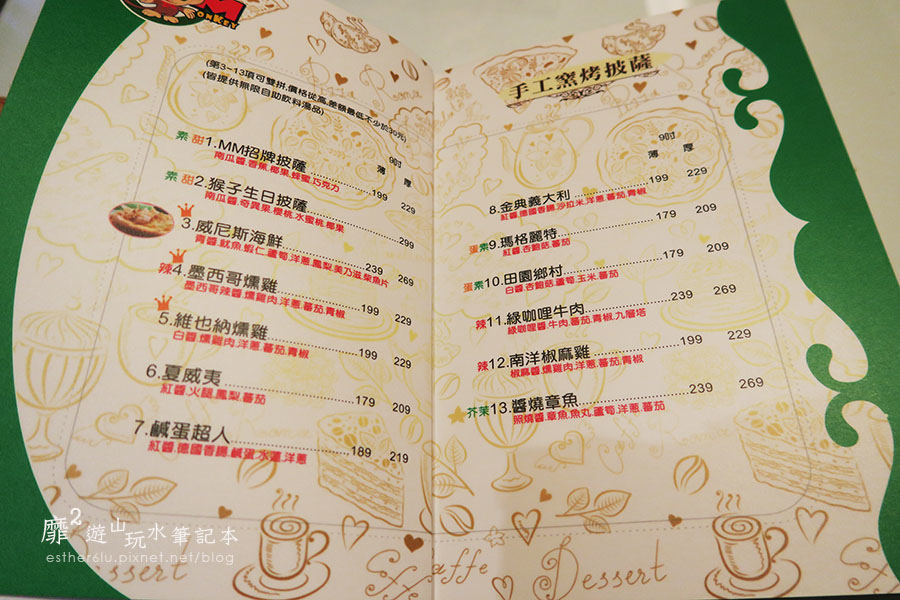 MONKEY
(第3~13項可雙拼,價格從高,差額最低不少於30元)
(皆提供無限自助飲料湯品)
9吋
薄 厚
素 甜1.MM招牌披薩 199 229
南瓜醬,香蕉,椰果,蜂蜜,巧克力
素 甜2.猴子生日披薩 299
南瓜醬,奇異果,櫻桃,水蜜桃,椰果
3.威尼斯海鮮 239 269
青醬,魷魚,蝦仁,蘆筍,洋蔥,鳳梨,美乃滋,柴魚片
辣4.墨西哥燻雞 199 229
墨西哥辣醬,燻雞肉,洋蔥,蕃茄,青椒
5.維也納燻雞 199 229
白醬,燻雞肉,洋蔥,蕃茄,青椒
6.夏威夷 179 209
紅醬,火腿,鳳梨,蕃茄
7.鹹蛋超人 189 219
紅醬,德國香腸,鹹蛋,水蓮,洋蔥
手工窯烤披薩
9吋
薄 厚
8.金典義大利 199 229
紅醬,德國香腸,沙拉米,洋蔥,蕃茄,青椒
蛋素9.瑪格麗特 179 209
紅醬,杏鮑菇,蕃茄
蛋素10.田園鄉村 179 209
白醬,杏鮑菇,蘆筍,玉米,蕃茄
辣11.綠咖哩牛肉 239 269
綠咖哩醬,牛肉,蕃茄,青椒,九層塔
辣12.南洋椒麻雞 199 229
椒麻醬,燻雞肉,洋蔥,蕃茄,青椒
芥茉13.醬燒章魚 239 269
照燒醬,章魚,魚丸,蘆筍,洋蔥,蕃茄
Coffee
Caffe
Dessert
靡2遊山玩水筆記本
esther6lu.pixnet.net/blog